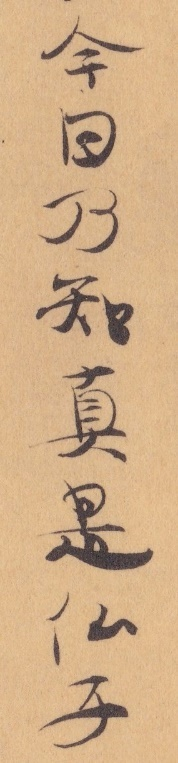 今日乃知真是仏子